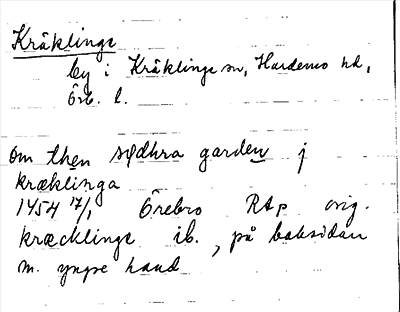 Kräklinge
by i Kräklinge sn, Hardemo hd,
Örb. l.
om then sydhra garden j
kræklinga
1454 17/1 Örebro RAp orig.
kræcklinge ib., på baksidan
m. yngre hand